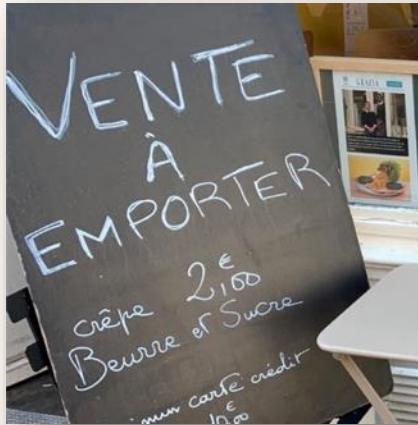 VENTE
À
EMPORTER
crêpe 2,00€
Beurre et Sucre
mum carte crédit
10,00€
GRAZIA